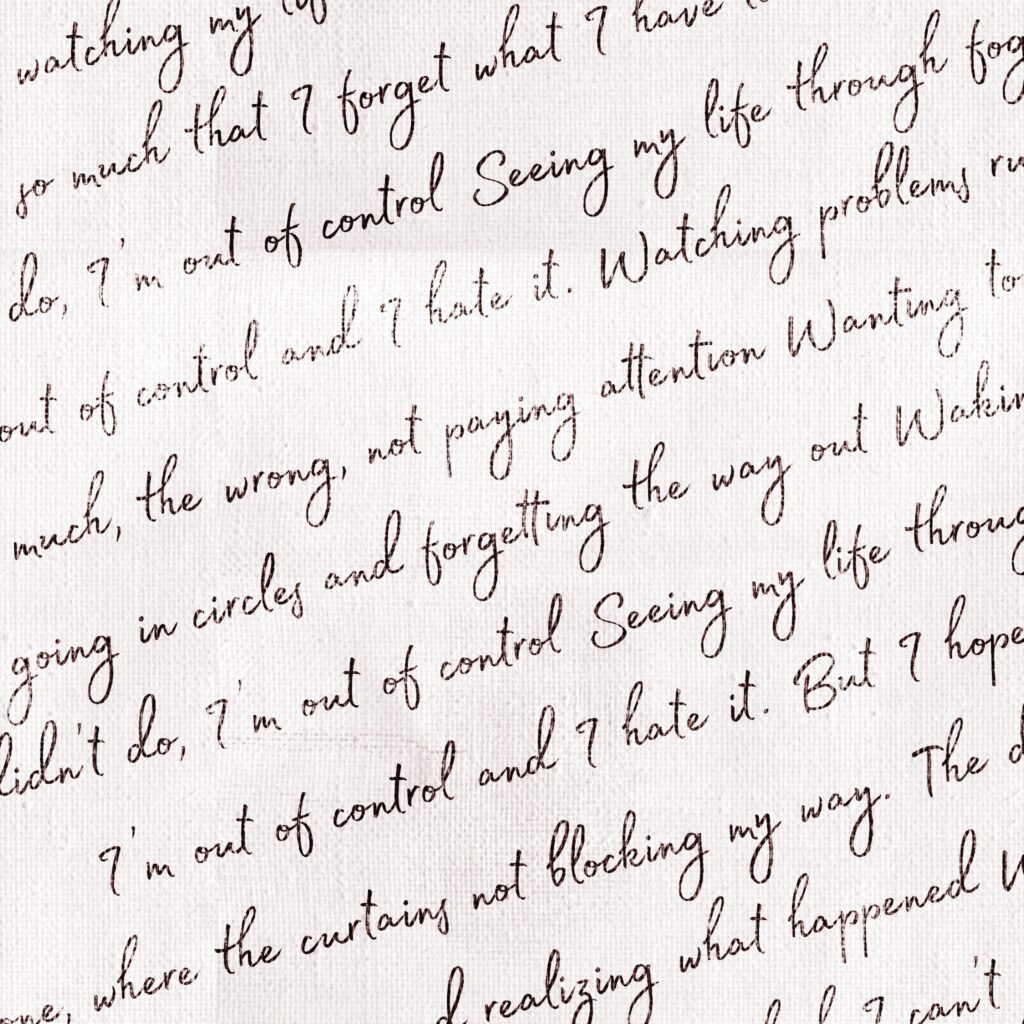 watching my
so much that I forget what I have
do, I'm out of control Seeing my life through
out of control and I hate it. Watching problems
much, the wrong, not paying attention Wanting to
going in circles and forgetting the way out
didn't do, I'm out of control Seeing my life
I'm out of control and I hate it. But I hope
where the curtains not blocking my way. The
realizing what happened
I can't